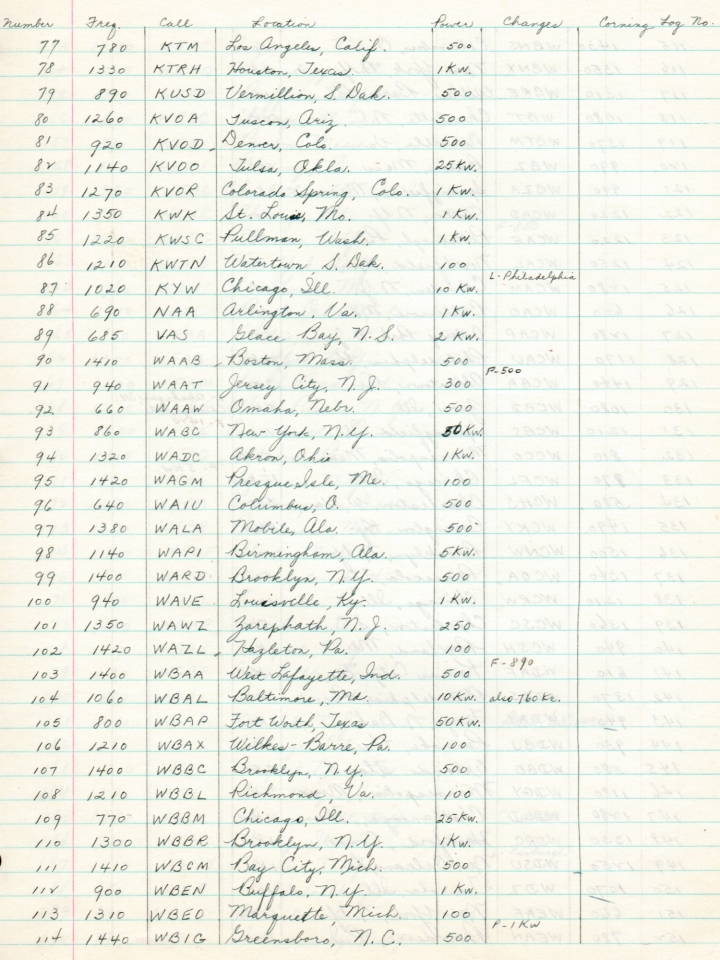 Number Freq. Call Location Power Changes Corning Log No.
77 780 KTM Los Angeles, Calif. 500
78 1330 KTRH Houston, Texas. 1 Kw.
79 890 KUSD Vermillion, S. Dak. 500
80 1260 KVOA Tuscon, Ariz. 500
81 920 KVOD Denver, Colo. 500
82 1140 KVOO Tulsa, Okla. 25 Kw.
83 1270 KVOR Colorado Spring, Colo. 1 Kw.
84 1350 KWK St. Louis, Mo. 1 Kw.
85 1220 KWSC Pullman, Wash. 1 Kw.
86 1210 KWTN Watertown, S. Dak. 100
87 1020 KYW Chicago, Ill. 10 Kw. L-Philadelphia
88 690 NAA Arlington, Va. 1 Kw.
89 685 VAS Glace Bay, N.S. 2 Kw.
90 1410 WAAB Boston, Mass. 500
91 940 WAAT Jersey City, N.J. 300 P-500
92 660 WAAW Omaha, Nebr. 500
93 860 WABC New York, N.Y. 50 Kw.
94 1320 WADC Akron, Ohio 1 Kw.
95 1420 WAGM Presque Isle, Me. 100
96 640 WAIU Columbus, O. 500
97 1380 WALA Mobile, Ala. 500
98 1140 WAPI Birmingham, Ala. 5 Kw.
99 1400 WARD Brooklyn, N.Y. 500
100 940 WAVE Louisville, Ky. 1 Kw.
101 1350 WAWZ Zarephath, N.J. 250
102 1420 WAZL Hazleton, Pa. 100
103 1400 WBAA West Lafayette, Ind. 500 F-890
104 1060 WBAL Baltimore, Md. 10 Kw. also 760 Kc.
105 800 WBAP Fort Worth, Texas 50 Kw.
106 1210 WBAX Wilkes-Barre, Pa. 100
107 1400 WBBC Brooklyn, N.Y. 500
108 1210 WBBL Richmond, Va. 100
109 770 WBBM Chicago, Ill. 25 Kw.
110 1300 WBBR Brooklyn, N.Y. 1 Kw.
111 1410 WBCM Bay City, Mich. 500
112 900 WBEN Buffalo, N.Y. 1 Kw.
113 1310 WBEO Marquette, Mich. 100
114 1440 WBIG Greensboro, N.C. 500 P-1 Kw